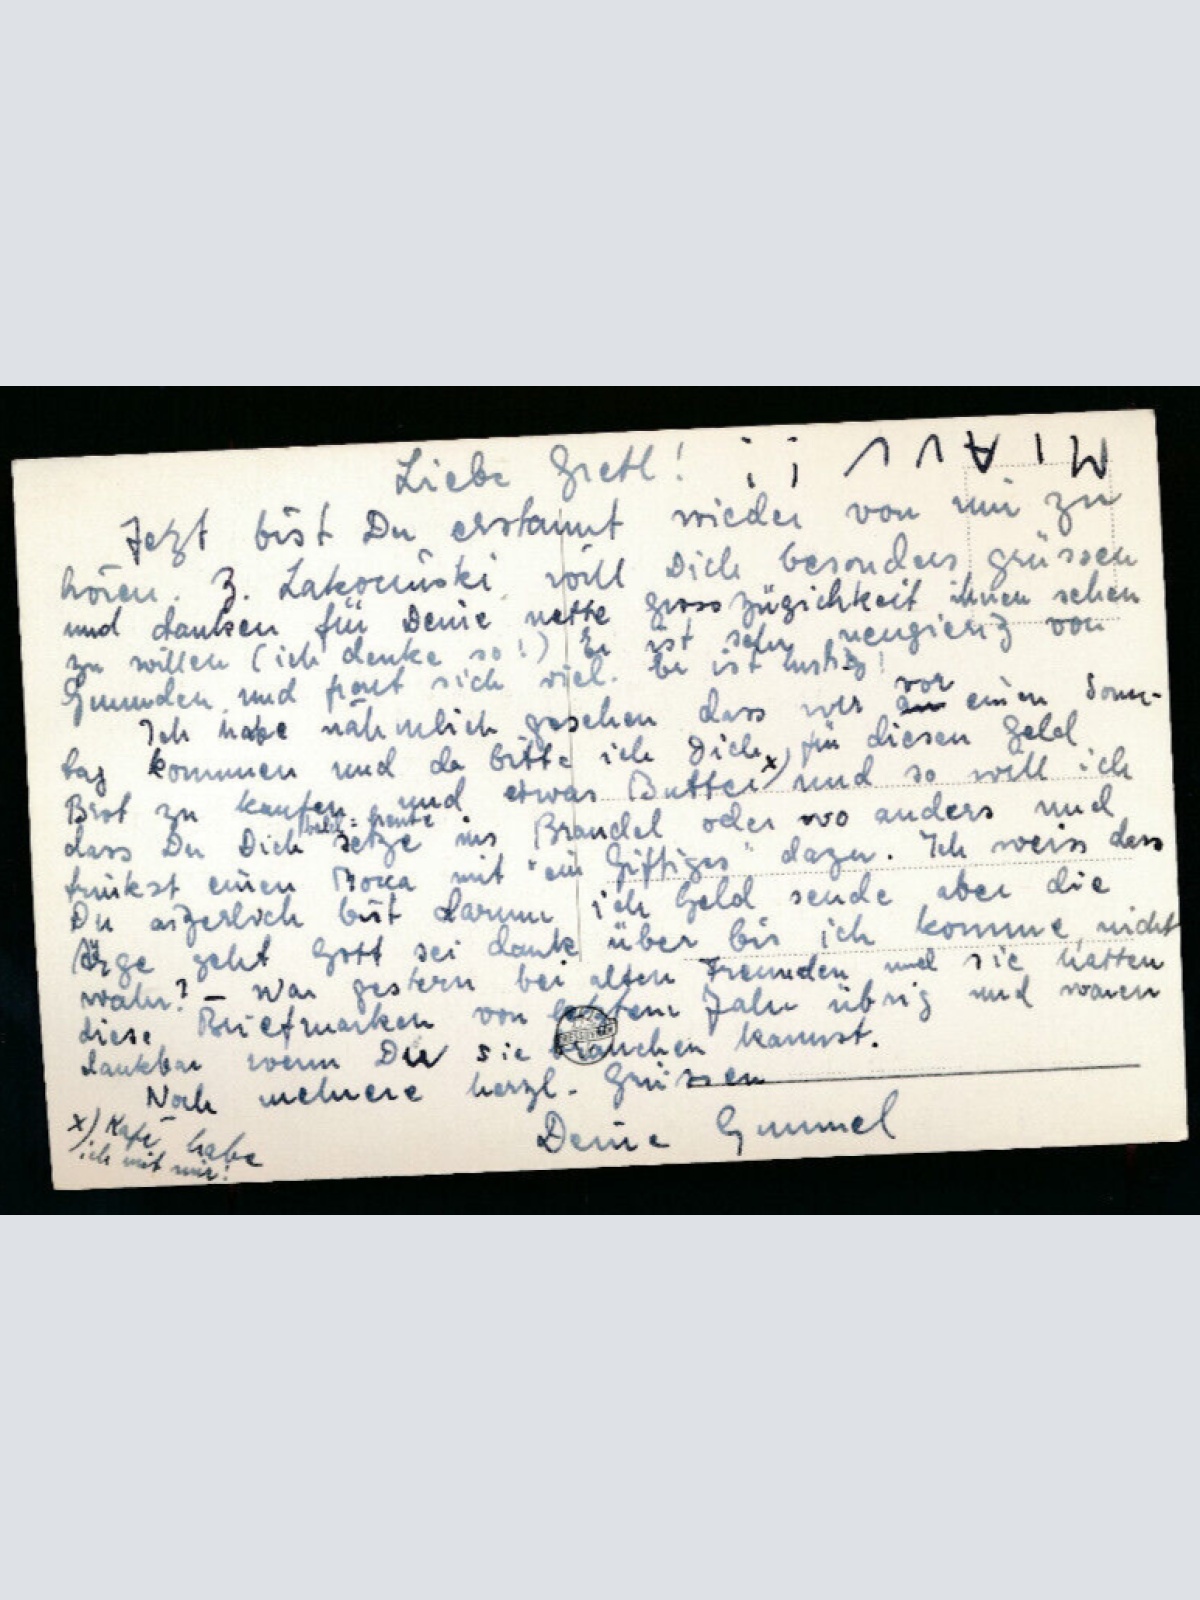 Liebe Gretl!
Jetzt bist Du erstaunt wieder von mir zu
hören. Z. Lakocinski will Dich besonders grüssen
und danken für Deine nette grosszügichkeit ihnen sehen
zu willen (ich denke so!) Er ist sehr neugierig von
Gmunden und freut sich viel. Er ist lustig!
Ich habe nähmlich gesehen dass wir vor einen Sonn-
tag kommen und da bitte ich Dich für diesen Geld
Brot zu kaufen und etwas Butter x) und so will ich
dass Du Dich setze ins Brandel oder wo anders und
trinkst einen Mocca mit "ein Giftiges" dazu. Ich weiss dass
Du ärgerlich bist darum ich Geld sende aber die
Ärge geht Gott sei danke über bis ich komme, nicht
wahr? – War gestern bei alten Freunden und sie hatten
diese Briefmarken von letztem Jahr übrig und waren
dankbar wenn Du sie brauchen kannst.
Noch mehrere herzl. Grüssen
Deine Gummel
x) Kafé habe
ich mit mir!